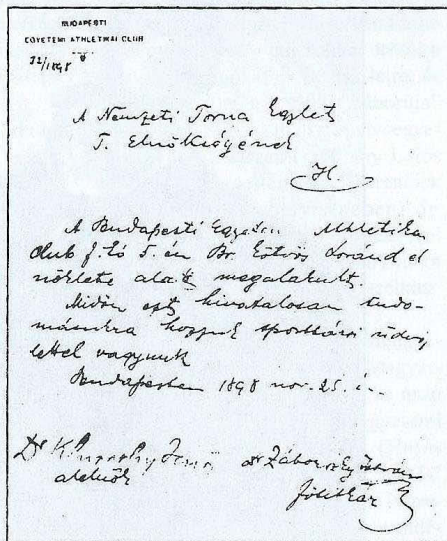 BUDAPESTI
EGYETEMI ATHLETIKAI CLUB
32/1898
A Nemzeti Torna Egylet
T. Elnökségének
H.
A Budapesti Egyetemi Athletikai
Club f. hó 5.én Br. Eötvös Loránd el
nöklete alatt megalakult.
Midőn ezt hivatalosan tudo-
másukra hozzuk sporttársi üdvöz
lettel vagyunk
Budapesten 1898 nov. 25.
Dr Jenő Dr Záborszky István
alelnök főtitkár